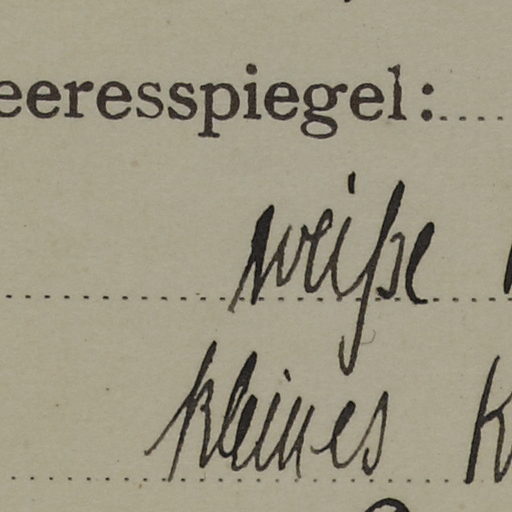 eeresspiegel:
weiße
kleines K